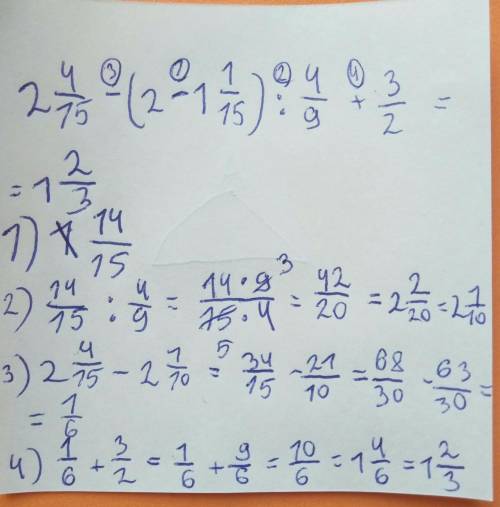 2 4/15 - (2 - 1 1/15) : 4/9 + 3/2 =
③ ① ② ④
= 1 2/3
1) 14/15
2) 14/15 : 4/9 = 14·9/15·4 = 42/20 = 2 2/20 = 2 1/10
3 5
3) 2 4/15 - 2 1/10 = 34/15 - 21/10 = 68/30 - 63/30 =
= 1/6
4) 1/6 + 3/2 = 1/6 + 9/6 = 10/6 = 1 4/6 = 1 2/3